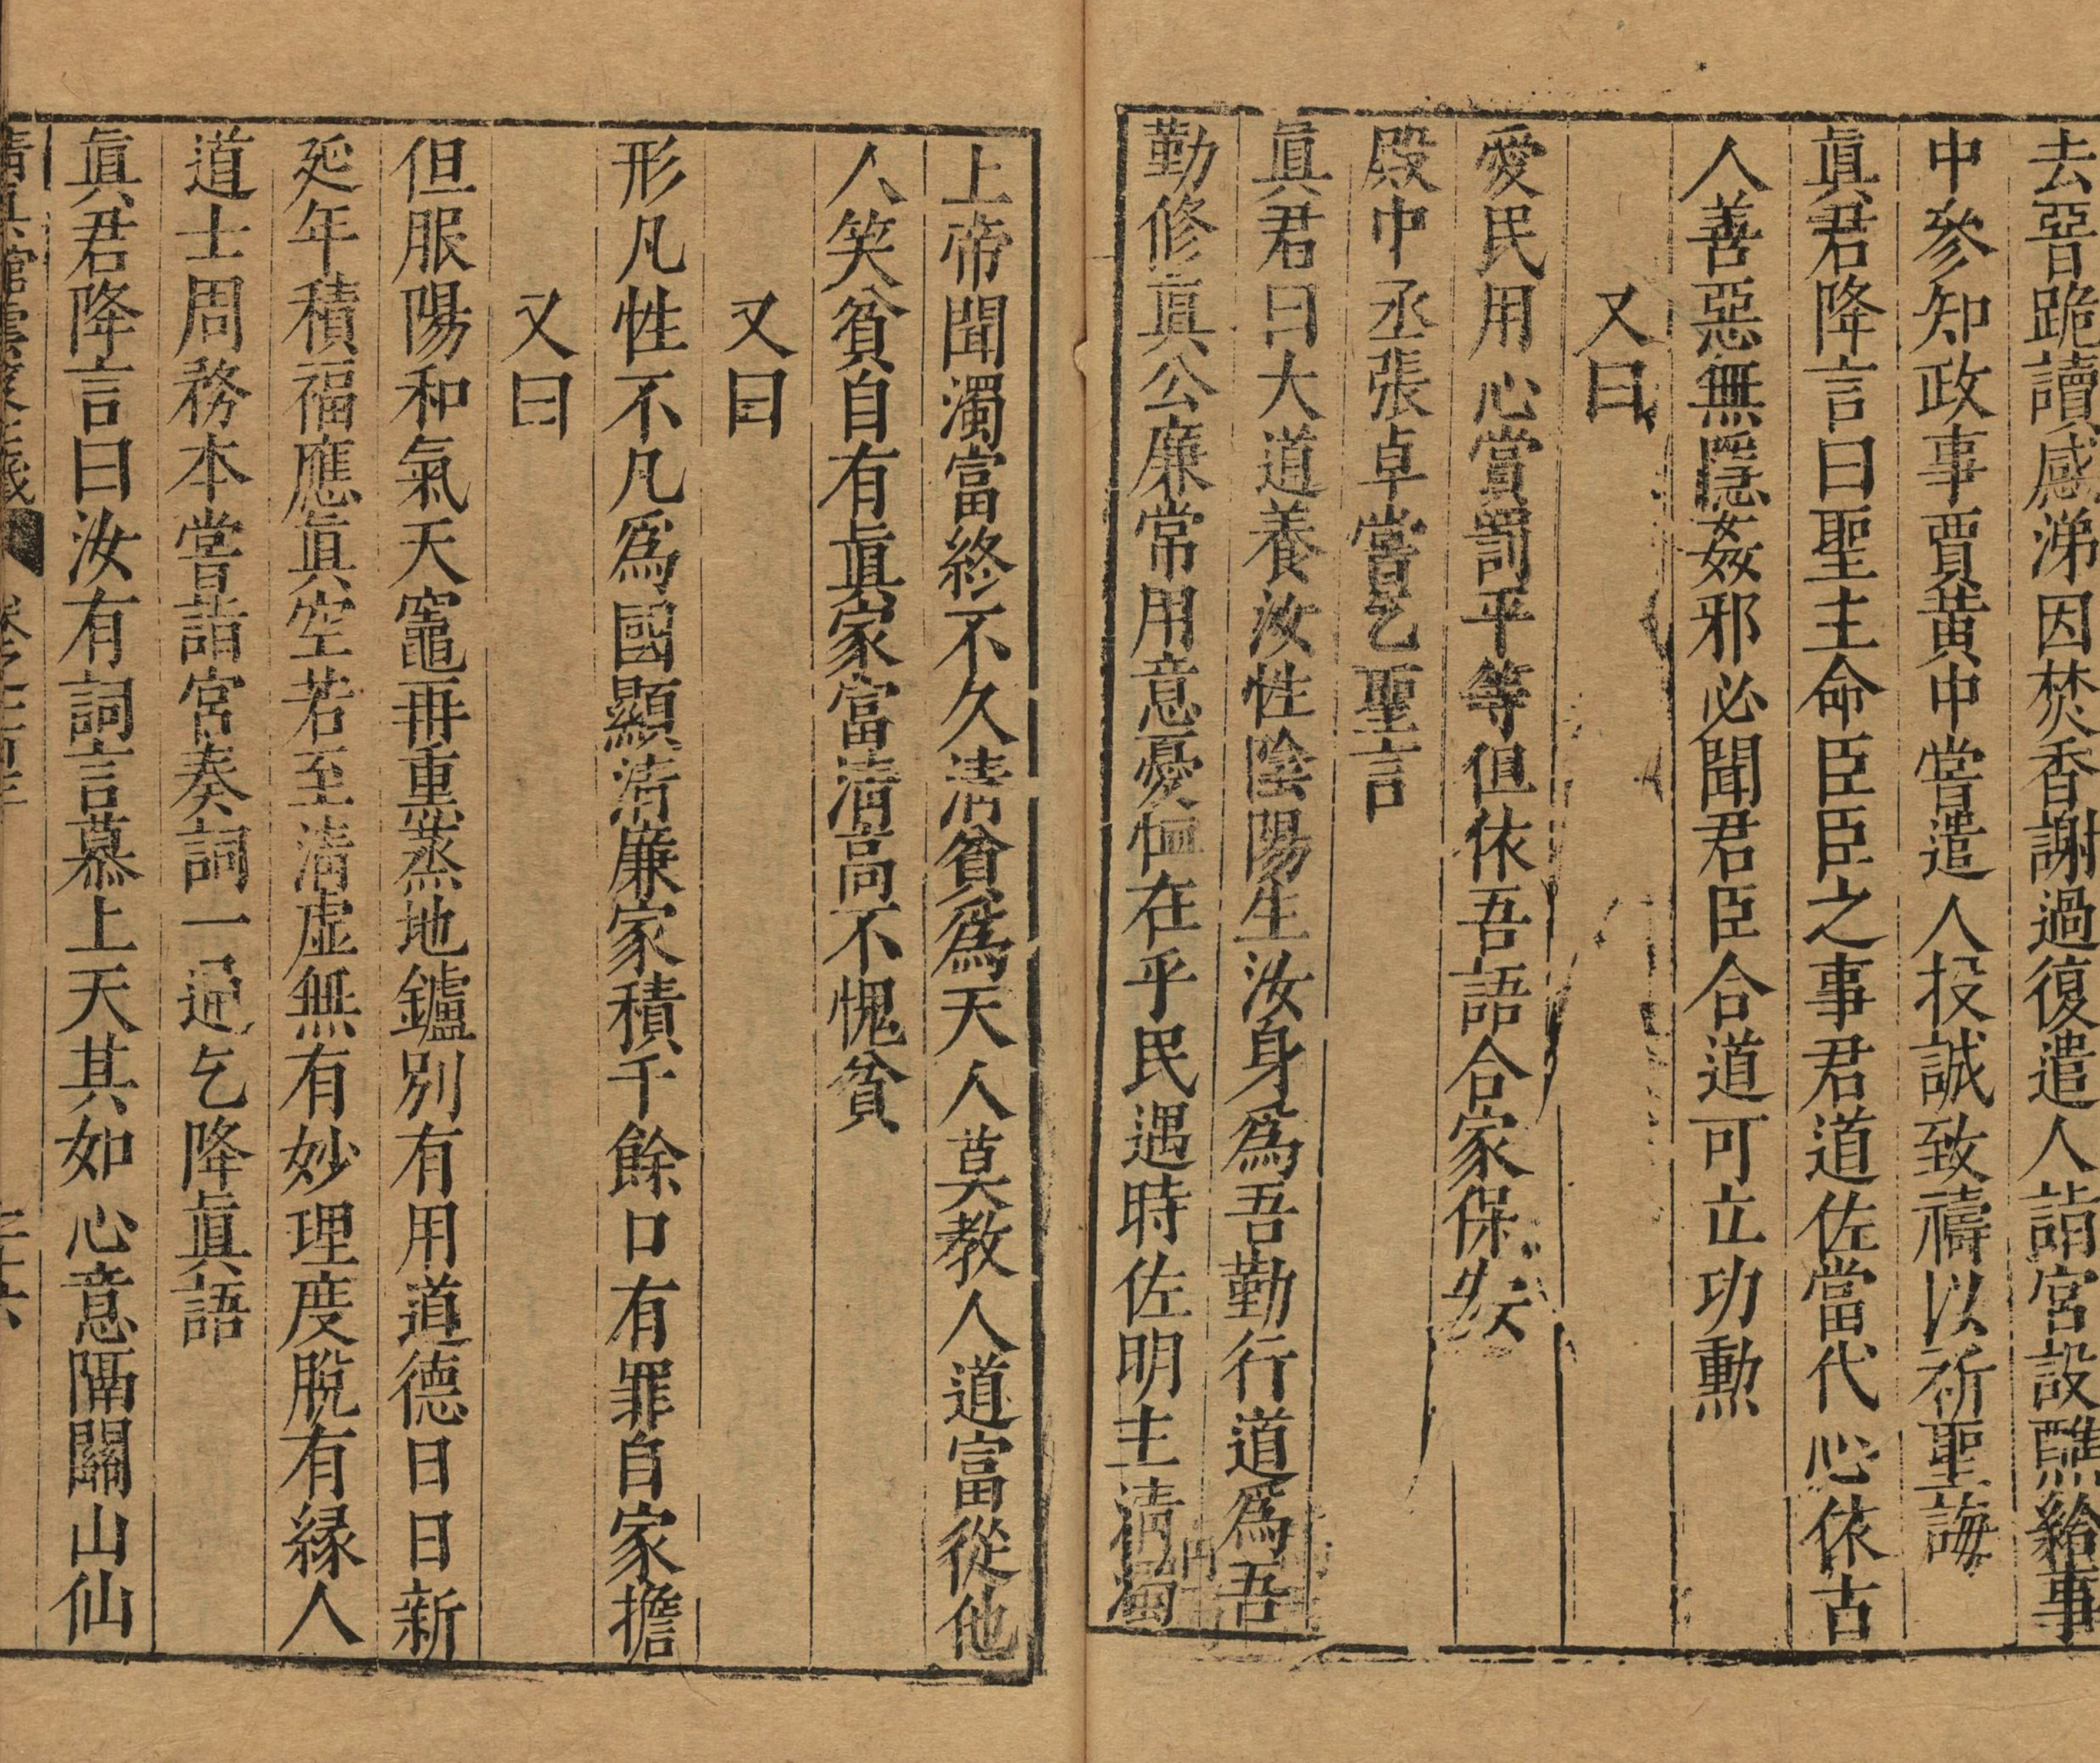 去惡跪讀感涕因焚香謝過復遣人詣宮設醮給事
中參知政事賈黃中嘗遣人投誠致禱以祈聖誨
眞君降言曰聖主命臣臣之事君道佐當代心依古
人善惡無隱姦邪必聞君臣合道可立功勳
又曰
愛民用心賞罰平等但依吾語合家保安
殿中丞張卓嘗乞聖言
眞君曰大道養汝性陰陽生汝身爲吾勤行道爲吾
勤修眞公廉常用意憂恤在乎民遇時佐明主清濁
上帝聞濁富終不久清貧爲天人莫教人道富從他
人笑貧自有眞家富清高不愧貧
又曰
形凡性不凡爲國顯清廉家積千餘口有罪自家擔
又曰
但服陽和氣天竈再重蒸地鑪別有用道德日日新
延年積福應眞空若至清虛無有妙理度脫有緣人
道士周務本嘗詣宮奏詞一通乞降眞語
眞君降言曰汝有詞言慕上天其如心意隔關山仙